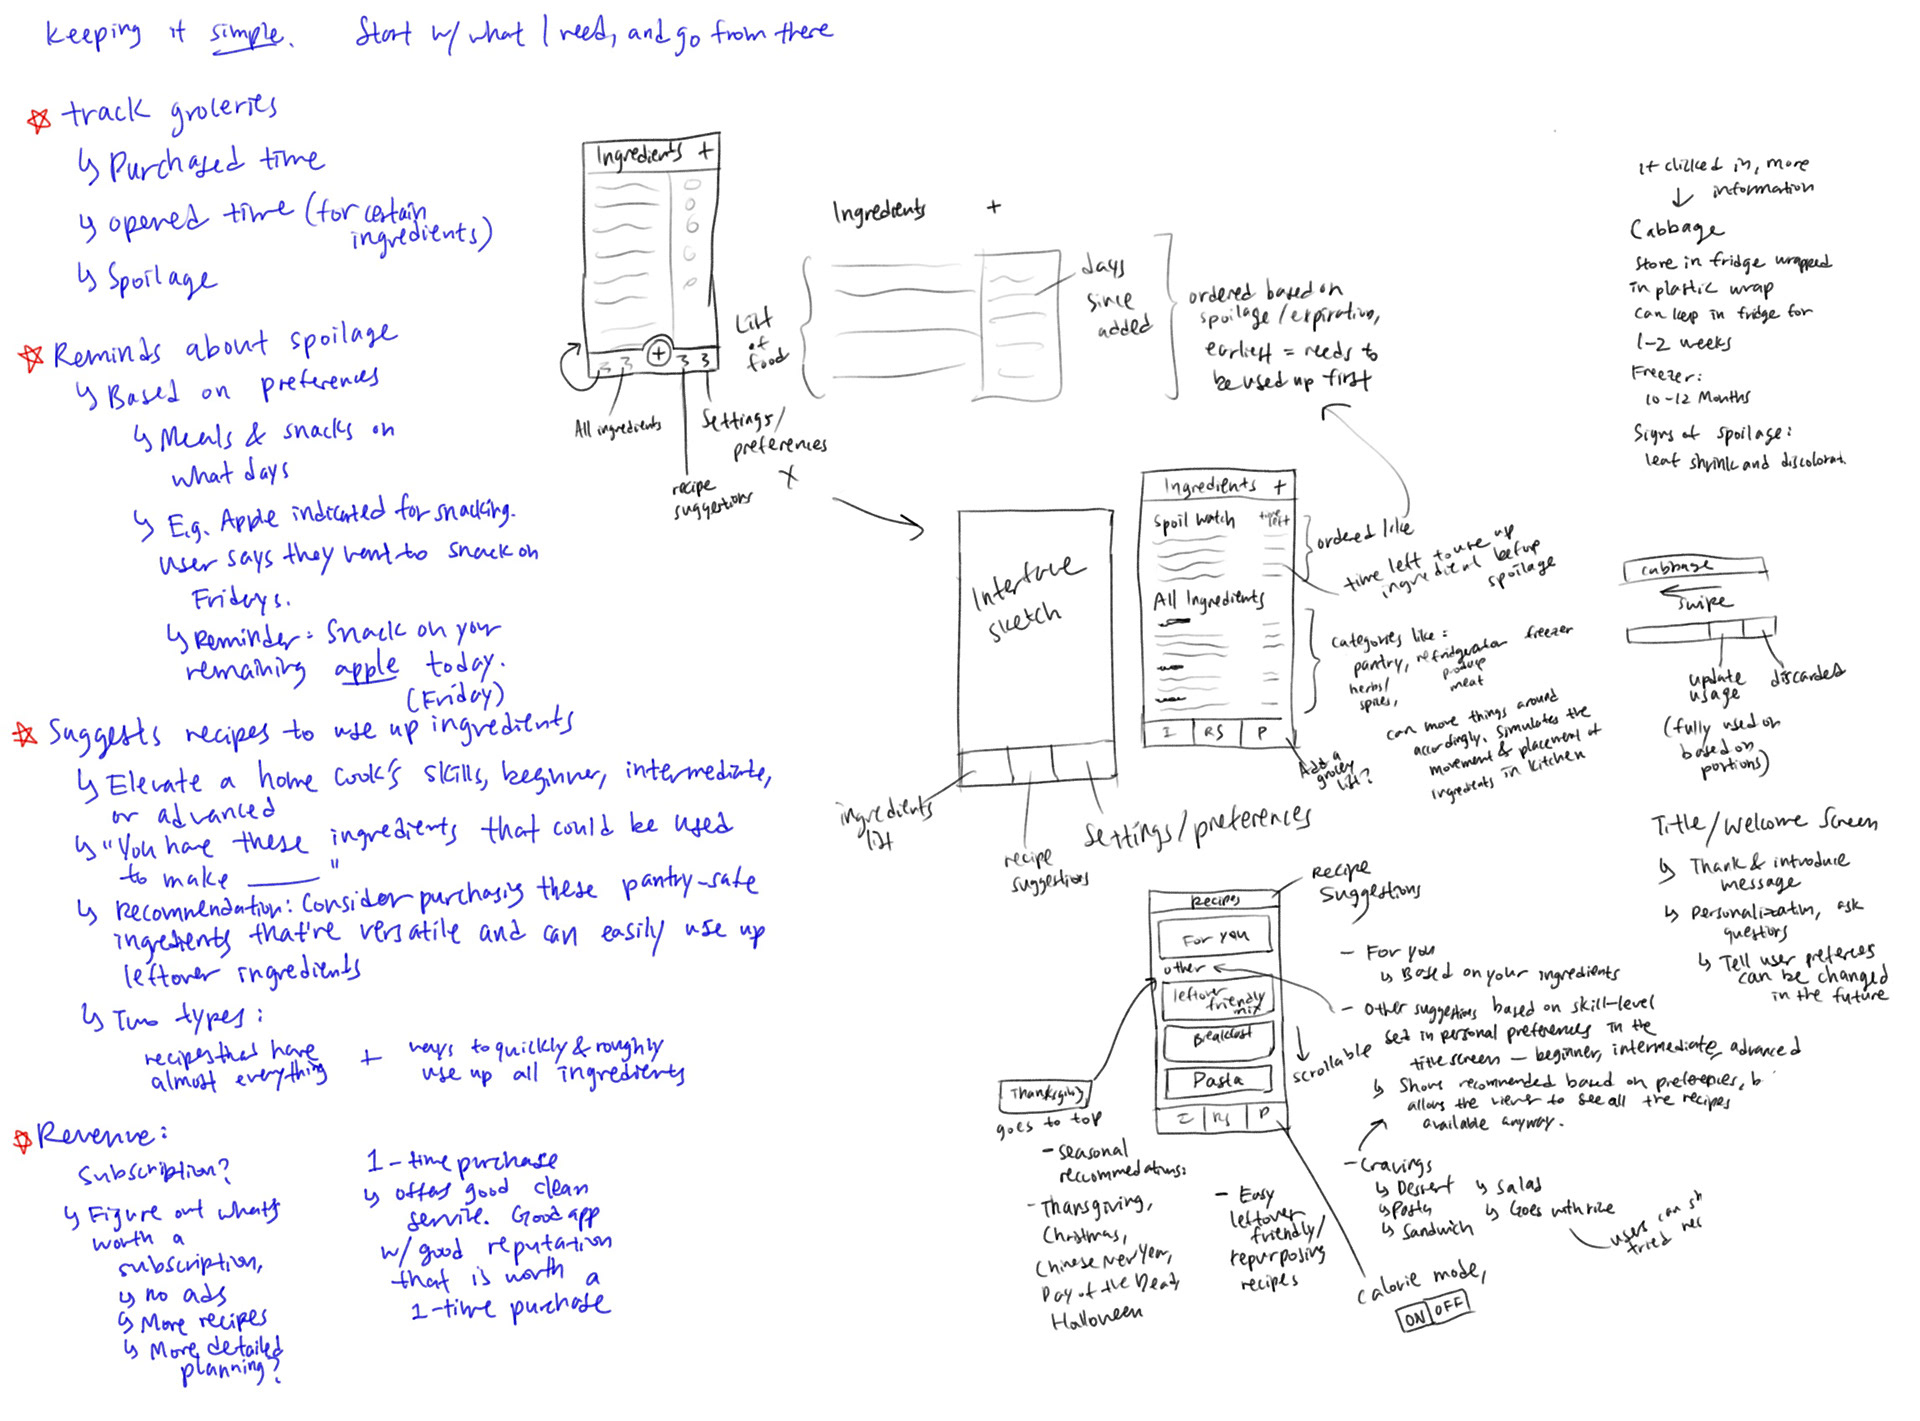 keeping it simple. Start w/ what I need, and go from there
track groceries
↳ Purchased time
↳ opened time (for certain
ingredients)
↳ Spoilage
Reminds about spoilage
↳ Based on preferences
↳ Meals & snacks on
what days
↳ E.g. Apple indicated for snacking.
user says they want to snack on
Fridays.
↳ Reminder: Snack on your
remaining apple today.
(Friday)
Suggests recipes to use up ingredients
↳ Elevate a home cook's skills, beginner, intermediate,
or advanced
↳ "You have these ingredients that could be used
to make ____"
↳ Recommendation: Consider purchasing these pantry-safe
ingredients that're versatile and can easily use up
leftover ingredients
↳ Two types:
recipes that have
almost everything
+
ways to quickly & roughly
use up all ingredients
Revenue:
Subscription?
↳ Figure out what's
worth a
subscription,
↳ no ads
↳ More recipes
↳ More detailed
planning?
1-time purchase
↳ offers good clean
service. Good app
w/ good reputation
that is worth a
1-time purchase
Ingredients +
+
All ingredients
recipe
suggestions
Settings/
preferences
X
Ingredients +
List
of
food
days
since
added
ordered based on
spoilage/expiration,
earliest = needs to
be used up first
Interface
sketch
ingredients
list
recipe
suggestions
Settings/preferences
Ingredients +
Spoil watch
time
left
All Ingredients
I RS P
ordered like
time left to use up
ingredient before
spoilage
categories like:
pantry, refridgerator freezer
herbs/
spices,
produce
meat
can move things around
accordingly. Simulates the
movement & placement of
ingredients in kitchen
Add a
grocery
list?
If clicked in, more
information
Cabbage
Store in fridge wrapped
in plastic wrap
can keep in fridge for
1-2 weeks
Freezer:
10-12 Months
Signs of spoilage:
leaf shrink and discolorat.
cabbage
swipe
update
usage
discarded
(fully used or
based on
portions)
Title/Welcome Screen
↳ Thank & introduce
message
↳ Personalization, ask
questions
↳ Tell user preferences
can be changed
in the future
Recipes
For you
other
leftover
friendly
mix
Breakfast
Pasta
I RS P
Recipe
Suggestions
scrollable
Thanksgiving
goes to top
- Seasonal
reccommedations:
- Thansgiving,
Christmas,
Chinese New Year,
Day of the Dead,
Halloween
- Easy
leftover
friendly/
repurposing
recipes
- For you
↳ Based on your ingredients
- Other suggestions based on skill-level
set in personal preferences in the
title screen — beginner, intermediate, advanced
↳ Shows recommended based on preferences, b
allows the viewer to see all the recipes
available anyway.
- Cravings
↳ Dessert ↳ Salad
↳ Pasta ↳ Goes with rice
↳ Sandwich
users can sh
tried rec
Calorie mode,
ON OFF